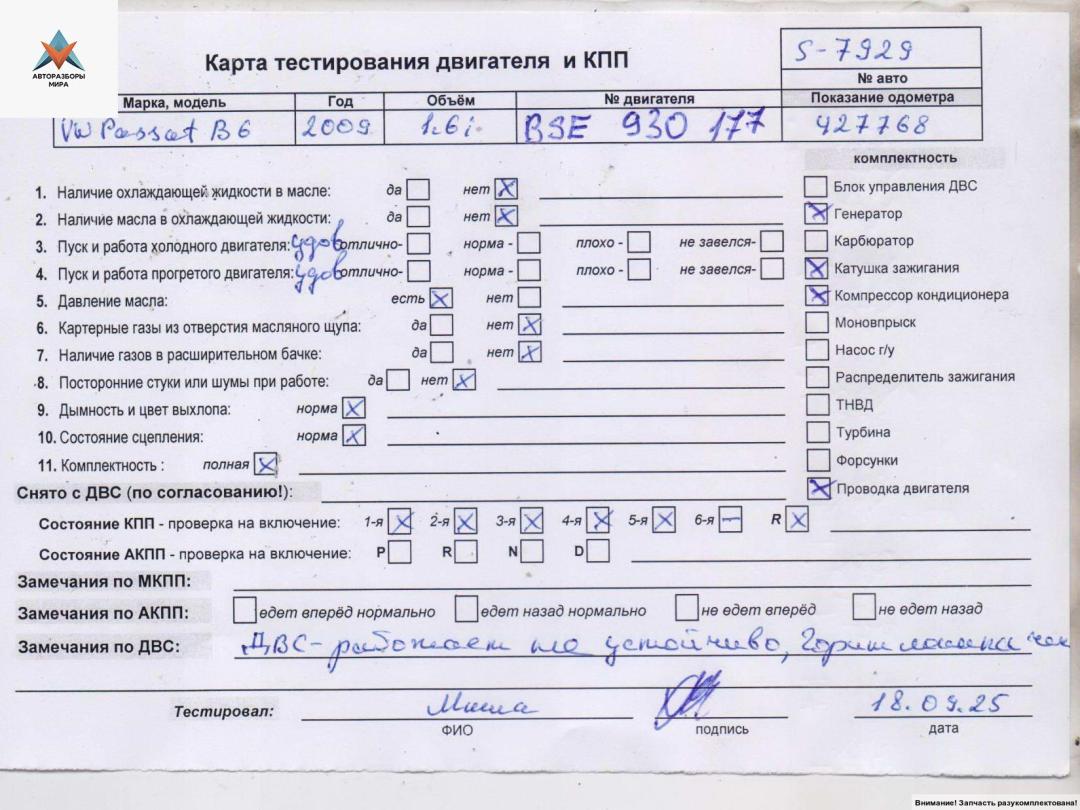 АВТОРАЗБОРЫ
МИРА
Карта тестирования двигателя и КПП
S-7929
№ авто
Марка, модель Год Объём № двигателя Показание одометра
VW Passat B6 2009 1.6i BSE 930 177 427768
комплектность
1. Наличие охлаждающей жидкости в масле: да нет X
Блок управления ДВС
2. Наличие масла в охлаждающей жидкости: да нет X
X Генератор
3. Пуск и работа холодного двигателя: удов отлично- норма - плохо - не завелся-
Карбюратор
4. Пуск и работа прогретого двигателя: удов отлично- норма - плохо - не завелся-
X Катушка зажигания
5. Давление масла: есть X нет
X Компрессор кондиционера
6. Картерные газы из отверстия масляного щупа: да нет X
Моновпрыск
7. Наличие газов в расширительном бачке: да нет X
Насос г/у
8. Посторонние стуки или шумы при работе: да нет X
Распределитель зажигания
9. Дымность и цвет выхлопа: норма X
ТНВД
10. Состояние сцепления: норма X
Турбина
11. Комплектность : полная X
Форсунки
Снято с ДВС (по согласованию!):
X Проводка двигателя
Состояние КПП - проверка на включение: 1-я X 2-я X 3-я X 4-я X 5-я X 6-я — R X
Состояние АКПП - проверка на включение: P R N D
Замечания по МКПП:
Замечания по АКПП: едет вперёд нормально едет назад нормально не едет вперёд не едет назад
Замечания по ДВС: ДВС - работает не устойчиво, Горит лампа чек
Тестировал: Миша 18.09.25
ФИО подпись дата
Внимание! Запчасть разукомплектована!